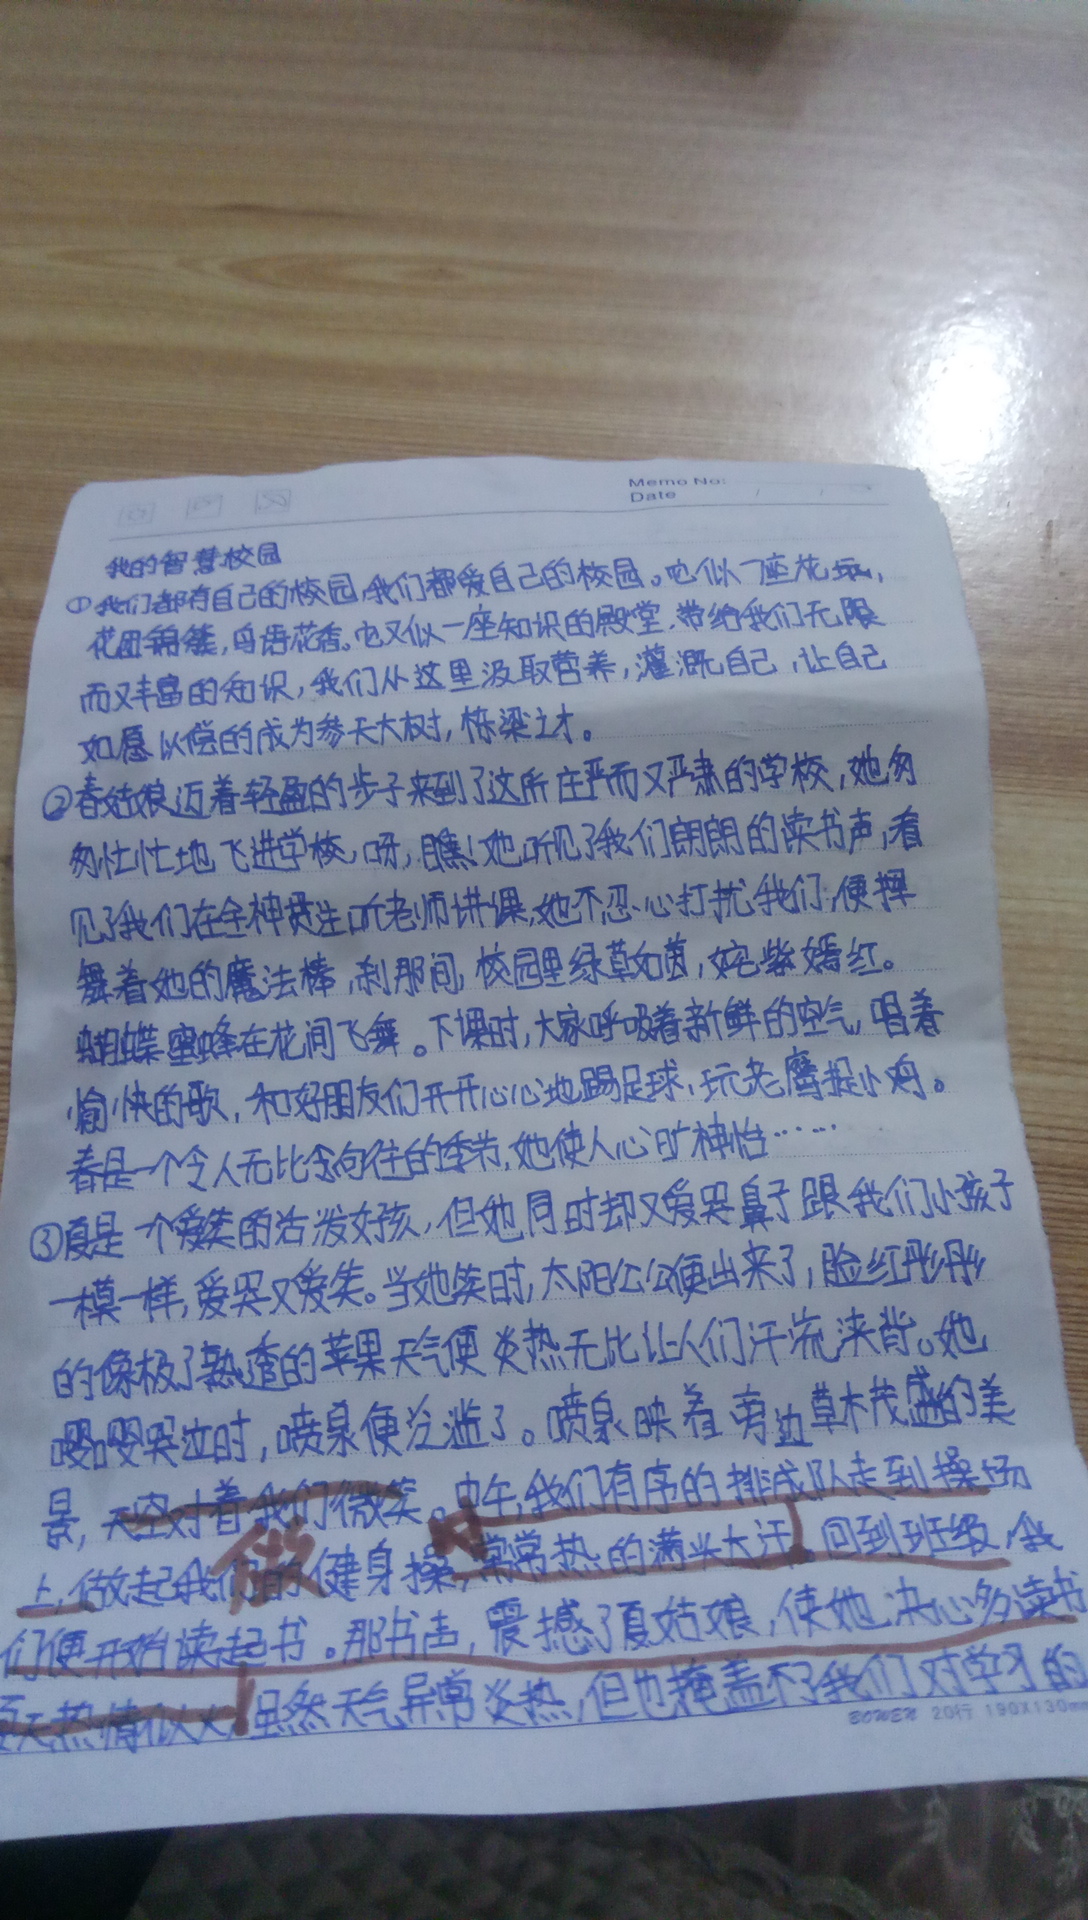 Memo No:
Date / /
我的智慧校园
①我们都有自己的校园,我们都爱自己的校园。它似一座花坛,
花团锦簇,鸟语花香。它又似一座知识的殿堂,带给我们无限
而又丰富的知识,我们从这里汲取营养,灌溉自己,让自己
如愿以偿的成为参天大树,栋梁之才。
②春姑娘迈着轻盈的步子来到了这所庄严而又严肃的学校,她匆
匆忙忙地飞进学校,呀,瞧!她听见了我们朗朗的读书声,看
见了我们在全神贯注听老师讲课,她不忍心打扰我们,便挥
舞着她的魔法棒,刹那间,校园里绿草如茵,姹紫嫣红。
蝴蝶蜜蜂在花间飞舞。下课时,大家呼吸着新鲜的空气,唱着
愉快的歌,和好朋友们开开心心地踢足球,玩老鹰捉小鸡。
春是一个令人无比向往的季节,她使人心旷神怡……
③夏是一个爱笑的活泼好孩,但她同时却又爱哭鼻子跟我们小孩子
一模一样,爱哭又爱笑。当她笑时,太阳公公便出来了,脸红彤彤
的像极了熟透的苹果天气便炎热无比让人们汗流浃背。她
嘤嘤哭泣时,喷泉便泛滥了。喷泉映着旁边草木茂盛的美
景,天空对着我们微笑。中午,我们有序的排成队走到操场
上,做起我们的健身操,常常热的满头大汗。回到班级,我
做
们便开始读起书。那书声,震撼了夏姑娘,使她决心多读书
夏天热情似火,虽然天气异常炎热,但也掩盖不了我们对学习的
BOWEN 20行 190X130m